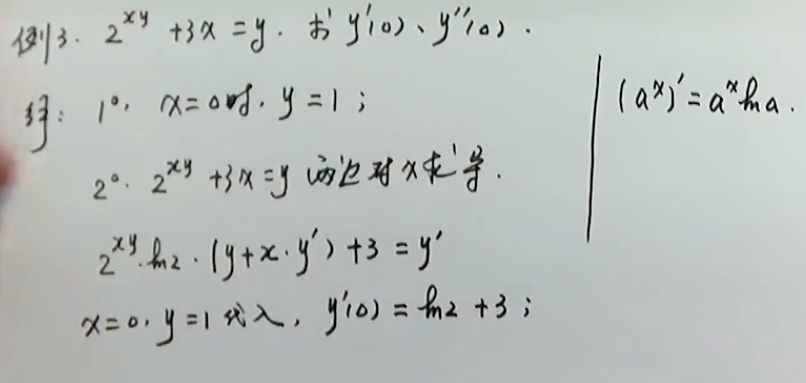 例3. 2^{xy} + 3x = y. 求 y'(0)、y''(0).
解: 1°. x=0时. y=1;
2°. 2^{xy} + 3x = y 两边对x求导.
2^{xy}·ln2·(y+x·y') + 3 = y'
x=0, y=1 代入, y'(0) = ln2 + 3;
(a^x)' = a^x ln a.